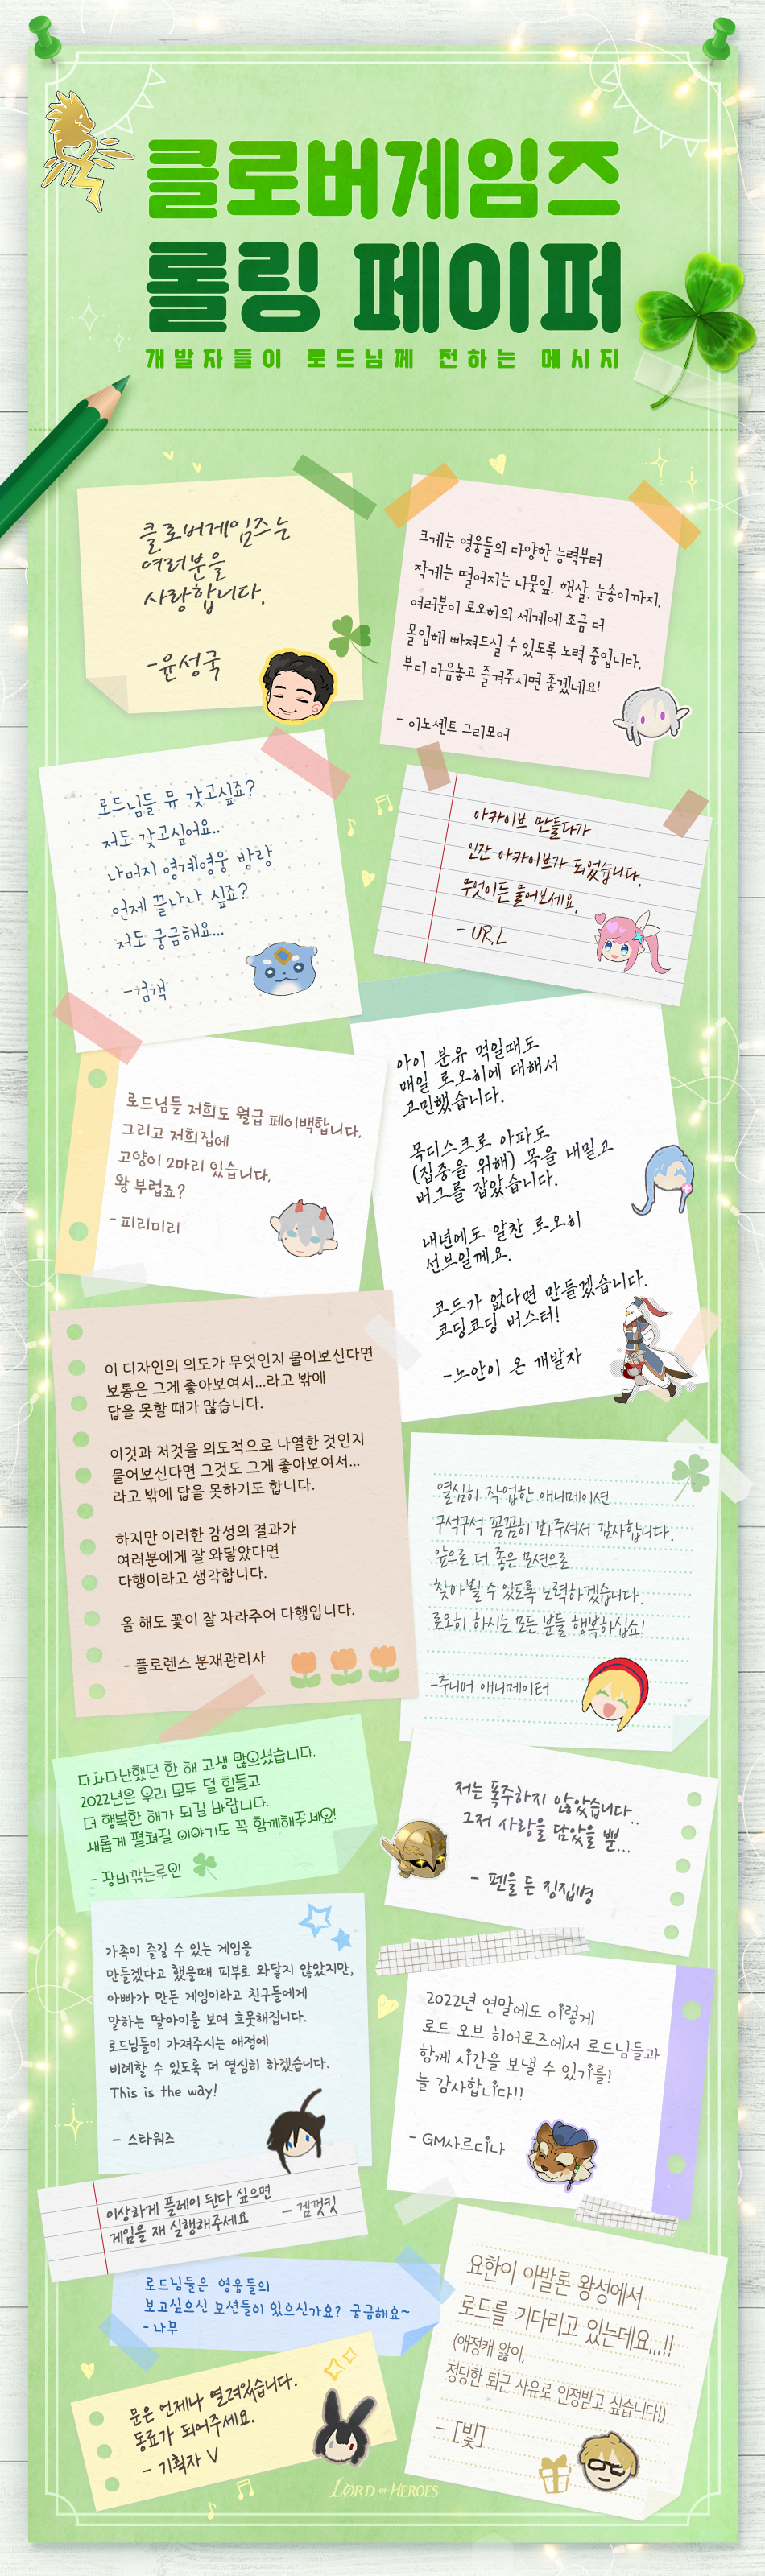 클로버게임즈
롤링 페이퍼
개발자들이 로드님께 전하는 메시지
클로버게임즈는
여러분을
사랑합니다.
-윤성국
크게는 영웅들의 다양한 능력부터
작게는 떨어지는 나뭇잎, 햇살, 눈송이까지,
여러분이 로오히의 세계에 조금 더
몰입해 빠져드실 수 있도록 노력 중입니다.
부디 마음놓고 즐겨주시면 좋겠네요!
- 이노센트 그리모어
로드님들 뮤 갖고싶죠?
저도 갖고싶어요..
나머지 영계영웅 방랑
언제 끝나나 싶죠?
저도 궁금해요...
-검객
아카이브 만들다가
인간 아카이브가 되었습니다.
무엇이든 물어보세요.
- URL
로드님들 저희도 월급 페이백합니다.
그리고 저희집에
고양이 2마리 있습니다.
왕 부럽죠?
- 피리미리
아이 분유 먹일때도
매일 로오히에 대해서
고민했습니다.
목디스크로 아파도
(집중을 위해) 목을 내밀고
버그를 잡았습니다.
내년에도 알찬 로오히
선보일께요.
코드가 없다면 만들겠습니다.
코딩코딩 버스터!
-노안이 온 개발자
이 디자인의 의도가 무엇인지 물어보신다면
보통은 그게 좋아보여서...라고 밖에
답을 못할 때가 많습니다.
이것과 저것을 의도적으로 나열한 것인지
물어보신다면 그것도 그게 좋아보여서...
라고 밖에 답을 못하기도 합니다.
하지만 이러한 감성의 결과가
여러분에게 잘 와닿았다면
다행이라고 생각합니다.
올 해도 꽃이 잘 자라주어 다행입니다.
- 플로렌스 분재관리사
열심히 작업한 애니메이션
구석구석 꼼꼼히 봐주셔서 감사합니다.
앞으로 더 좋은 모션으로
찾아뵐 수 있도록 노력하겠습니다.
로오히 하시는 모든 분들 행복하십쇼!
-주니어 애니메이터
다사다난했던 한 해 고생 많으셨습니다.
2022년은 우리 모두 덜 힘들고
더 행복한 해가 되길 바랍니다.
새롭게 펼쳐질 이야기도 꼭 함께해주세요!
- 장비깎는루인
저는 폭주하지 않았습니다..
그저 사랑을 담았을 뿐...
- 펜을 든 징집병
가족이 즐길 수 있는 게임을
만들겠다고 했을때 피부로 와닿지 않았지만,
아빠가 만든 게임이라고 친구들에게
말하는 딸아이를 보며 흐뭇해집니다.
로드님들이 가져주시는 애정에
비례할 수 있도록 더 열심히 하겠습니다.
This is the way!
- 스타워즈
2022년 연말에도 이렇게
로드 오브 히어로즈에서 로드님들과
함께 시간을 보낼 수 있기를!
늘 감사합니다!!
- GM사르디나
이상하게 플레이 된다 싶으면
게임을 재 실행해주세요 - 겜껏킷
로드님들은 영웅들의
보고싶으신 모션들이 있으신가요? 궁금해요~
- 나무
요한이 아발론 왕성에서
로드를 기다리고 있는데요,,,!!
(애정캐 앓이,
정당한 퇴근 사유로 인정받고 싶습니다!)
- [빛]
문은 언제나 열려있습니다.
동료가 되어주세요.
- 기획자 V
LORD OF HEROES